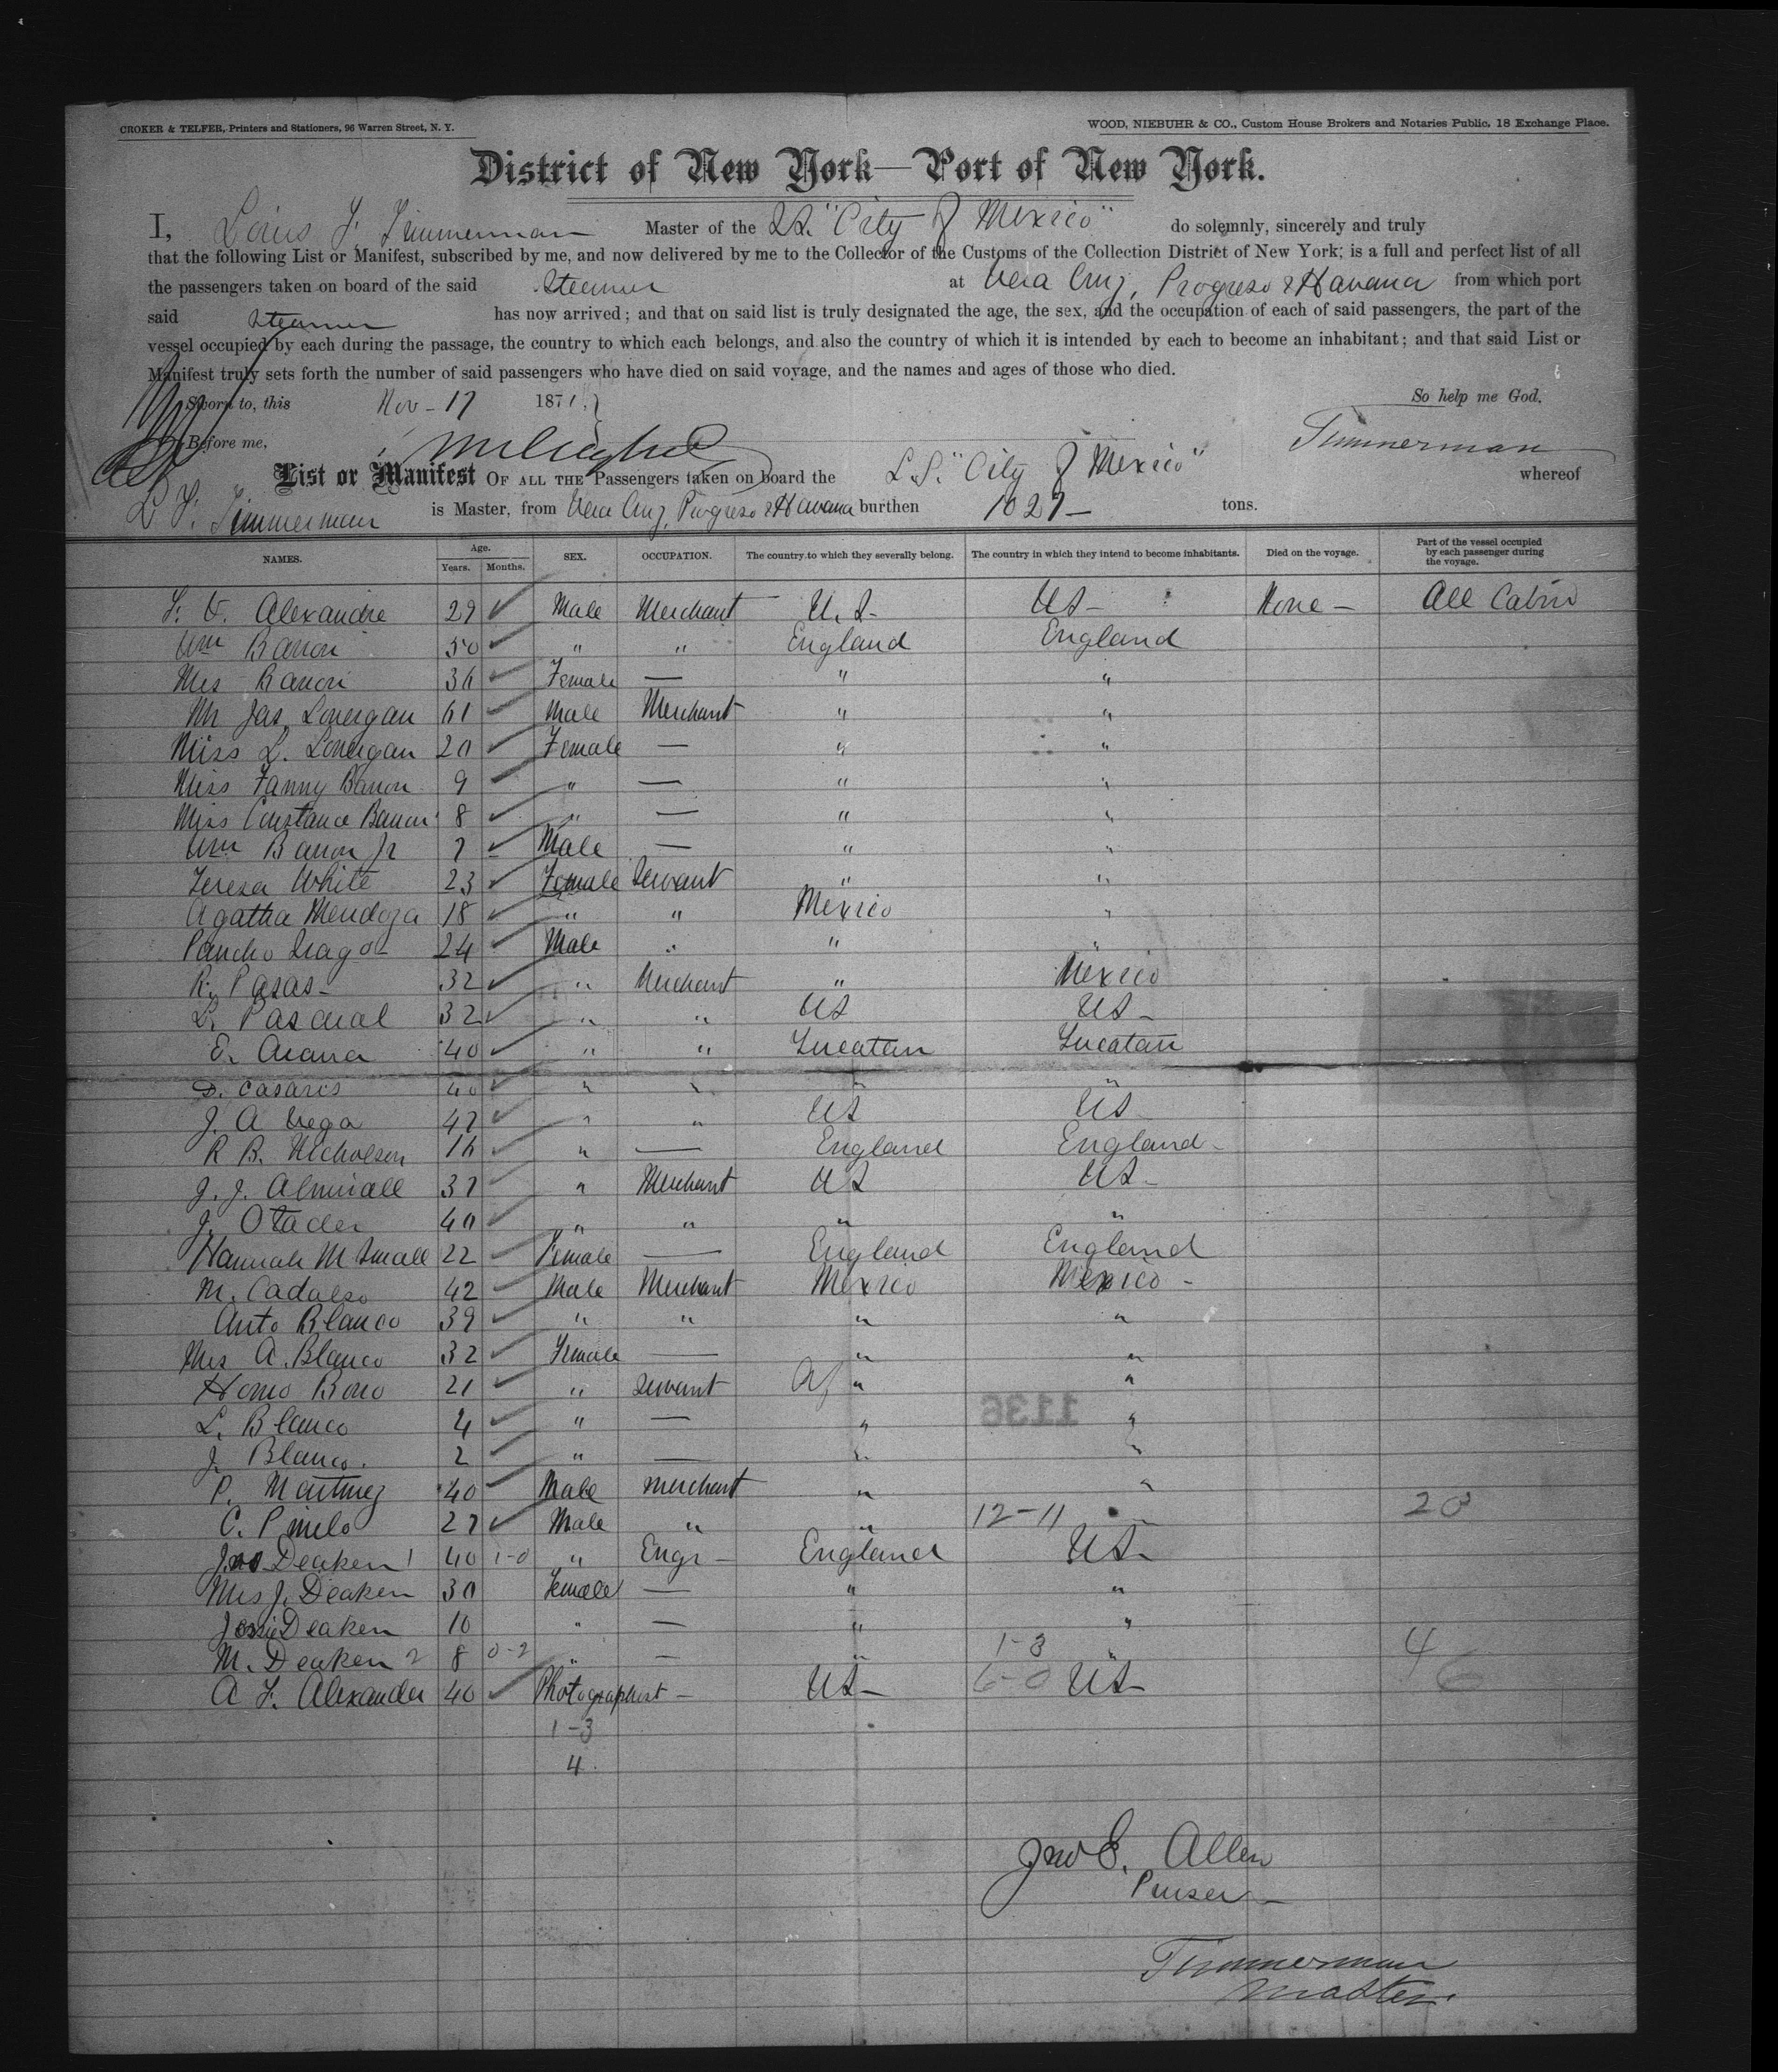 CROKER & TELFER, Printers and Stationers, 96 Warren Street, N. Y. WOOD, NIEBUHR & CO., Custom House Brokers and Notaries Public, 18 Exchange Place.
District of New York—Port of New York.
I, Louis F. Timmerman Master of the SS. "City of Mexico" do solemnly, sincerely and truly
that the following List or Manifest, subscribed by me, and now delivered by me to the Collector of the Customs of the Collection District of New York; is a full and perfect list of all
the passengers taken on board of the said Steamer at Vera Cruz, Progreso & Havana from which port
said Steamer has now arrived; and that on said list is truly designated the age, the sex, and the occupation of each of said passengers, the part of the
vessel occupied by each during the passage, the country to which each belongs, and also the country of which it is intended by each to become an inhabitant; and that said List or
Manifest truly sets forth the number of said passengers who have died on said voyage, and the names and ages of those who died.
Sworn to, this Nov - 17 1871. So help me God,
Before me, Timmerman
List or Manifest OF ALL THE Passengers taken on board the S.S. "City of Mexico" whereof
L F. Timmerman is Master, from Vera Cruz, Progreso & Havana burthen 1027 - tons.
NAMES. Age. Years. Months. SEX. OCCUPATION. The country to which they severally belong. The country in which they intend to become inhabitants. Died on the voyage. Part of the vessel occupied by each passenger during the voyage.
F. V. Alexandre 29 Male Merchant U.S- US- None - All Cabin
Wm Barron 50 " " England England
Mrs Barron 36 Female — " "
Mr Jas. Lonergan 61 Male Merchant " "
Miss L. Lonergan 20 Female — " "
Miss Fanny Barron 9 " — " "
Miss Constance Barron 8 " — " "
Wm Barron Jr 7 Male — " "
Teresa White 23 Female Servant " "
Agatha Mendoza 18 " " Mexico "
Pancho 24 Male " " "
R. Pasas - 32 " Merchant " Mexico
L. Pascual 32 " " US US -
E. Arana 40 " " Yucatan Yucatan
D. Casares 40 " " " "
J. A Vega 47 " " US US
R B. Nicholson 16 " — England England -
J. J. Almirall 37 " Merchant US US -
J. Otader 40 " " " "
Hannah M Small 22 Female — England England
M. Cadalso 42 Male Merchant Mexico Mexico -
Anto Blanco 39 " " " "
Mrs A. Blanco 32 Female — " "
21 " Servant " "
L. Blanco 4 " — " "
1136
J. Blanco. 2 " — " "
P. Martinez 40 Male Merchant " "
C. Pinelo 27 Male " " 12-11 " 23
Jno Deaken 1 40 1-0 " Engr - England US-
Mrs J. Deaken 30 Female — " "
Jessie Deaken 10 " — " "
M. Deaken 2 8 0-2 " — " 1-3 " 4
A F. Alexander 40 Photographist - US - 6-0 US- 6
1-3
4
Jno E. Allen
Purser -
Timmerman
Master.